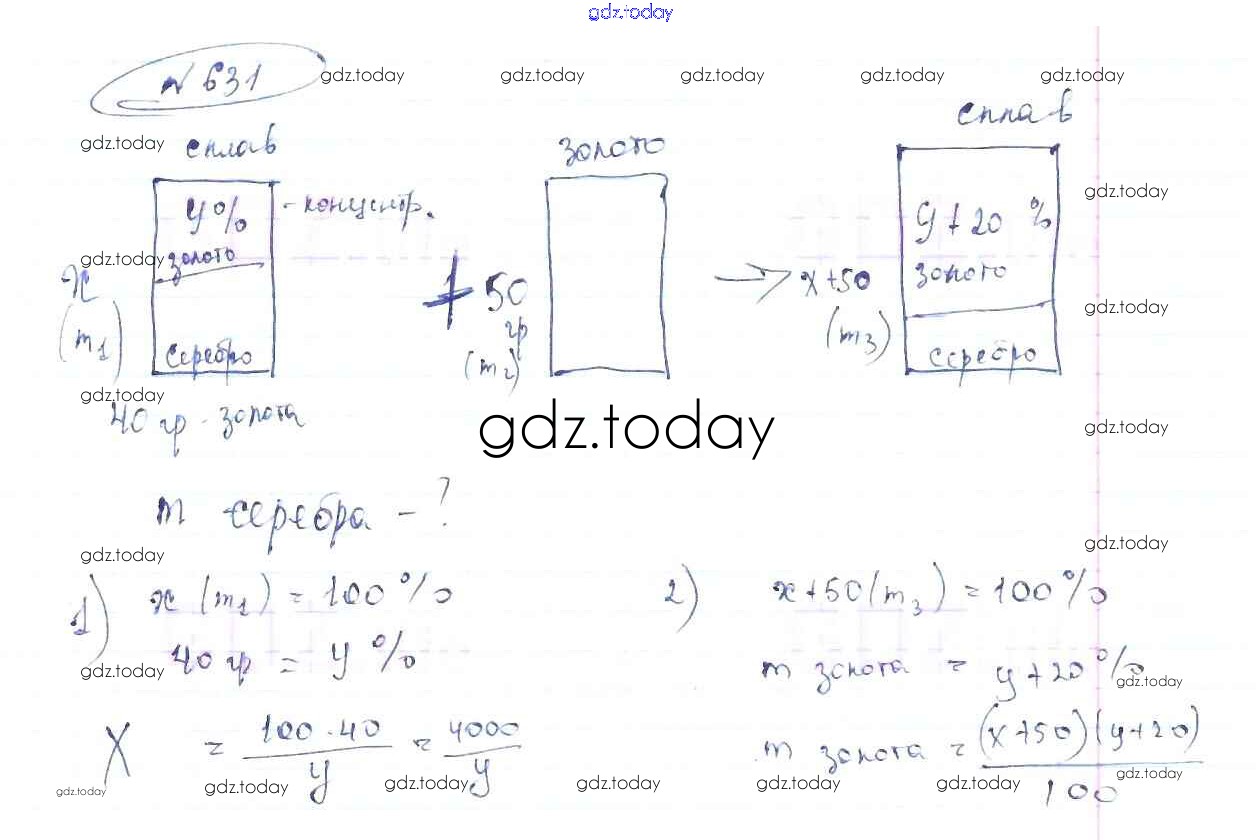 gdz.today
№ 631
gdz.today gdz.today gdz.today gdz.today gdz.today
gdz.today сплав золото сплав
y% - концентр. y + 20 % gdz.today
gdz.today золото золото
x + 50 гр → x + 50 gdz.today
(m₁) (m₂) (m₃)
серебро серебро
gdz.today
40 гр - золота gdz.today gdz.today
m серебра - ?
gdz.today gdz.today
1) x (m₁) = 100 % 2) x + 50 (m₃) = 100 %
40 гр = y % m золота = y + 20 %
gdz.today gdz.today
X = 100 · 40 / y = 4000 / y m золота = (x + 50)(y + 20) / 100
gdz.today gdz.today gdz.today gdz.today gdz.today gdz.today gdz.today